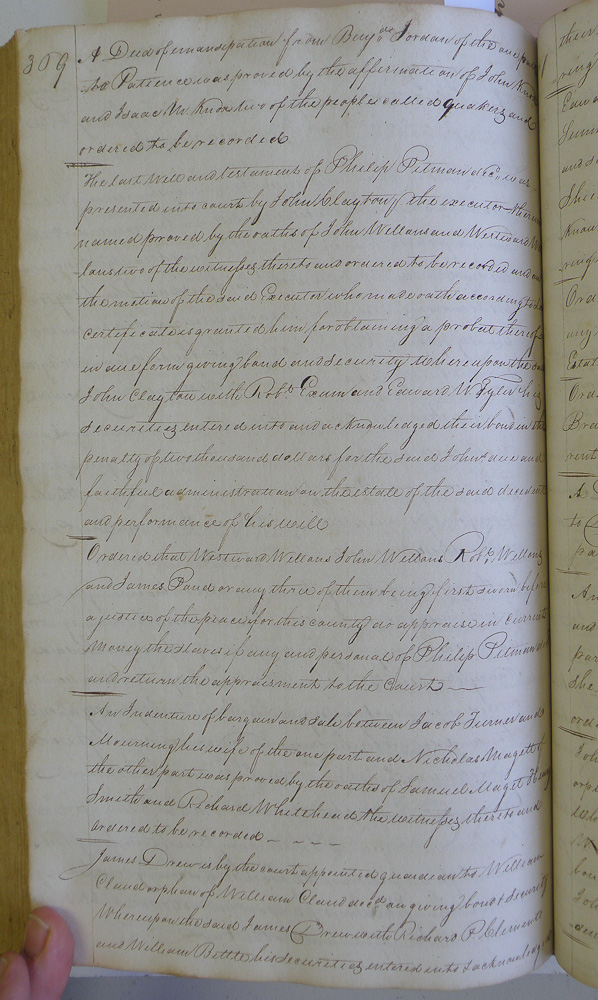 309
A Deed of emancipation from Benjn. Jordan of the one part
to Patience was proved by the affirmation of John Knox
and Isaac M. Knox two of the people called quakers and
ordered to be recorded
The last Will and testament of Philip Pitman decd. was
presented into court by John Clayton the executor therein
named proved by the oaths of John Wellons and Westward
lons two of the witnesses thereto and ordered to be recorded and on
the motion of the said Executor who made oath according to
certificate is granted him for obtaining a probat thereof
in due form giving bond and security Whereupon the
John Clayton with Robt. Exum and Edward W. Tyler his
securities entered into and acknowledged their bond in the
penalty of two thousand dollars for the said Johns due and
faithful administration on the estate of the said decedent
and performance of his will
Ordered that Westward Wellons John Wellons Robt. Wellons
and James Pond or any three of them being first sworn before
a justice of the peace for this county do appraise in current
Money the slaves if any and personal of Philip Pitman
and return the appraisment to the Court
An Indenture of bargain and sale between Jacob Turner and
Mourning his wife of the one part and Nicholas Magett of
the other part was proved by the oaths of Samuel Magett
Smith and Richard Whitehead the witnesses thereto and
ordered to be recorded
James Drew is by the court appointed guardian to William
Claud orphan of William Claud decd on giving bond & security
Whereupon the said James Drew with Richard P. Clements
and William Bittle his securities entered into & acknowledged